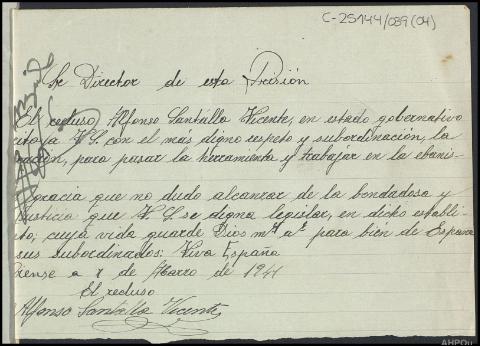 C-25144/089(04)
Sr Director de esta Prisión
El recluso, Alfonso Santalla Vicente, en estado gobernativo
a V.S. con el más digno respeto y subordinación, la
para pasar la herramienta y trabajar en la ebanis-
gracia que no dudo alcanzar de la bondadosa y
justicia que V.S. se digna legislar, en dicho establi-
to, cuya vida guarde Dios ms as para bien de España
sus subordinados: Viva España
de Marzo de 1941
El recluso
Alfonso Santalla Vicente
AHPOu